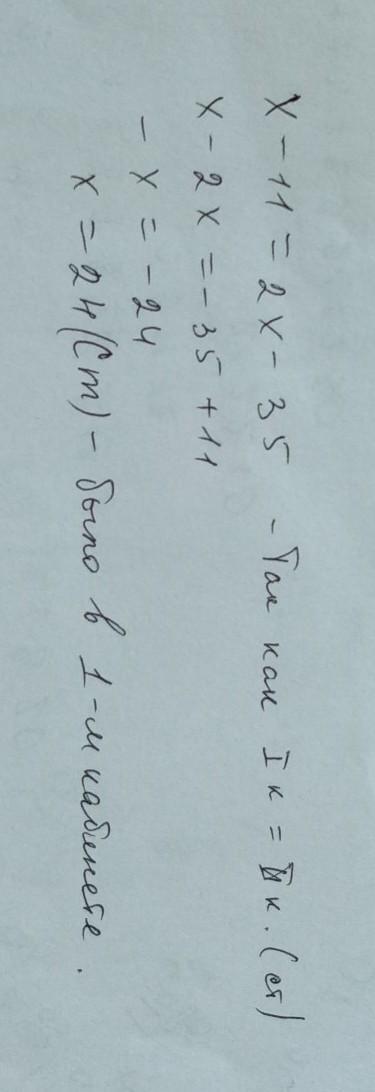 х - 11 = 2х - 35 - так как I к = II к. (ст)
х - 2х = - 35 + 11
- х = - 24
х = 24 (ст) - было в 1-м кабинете.